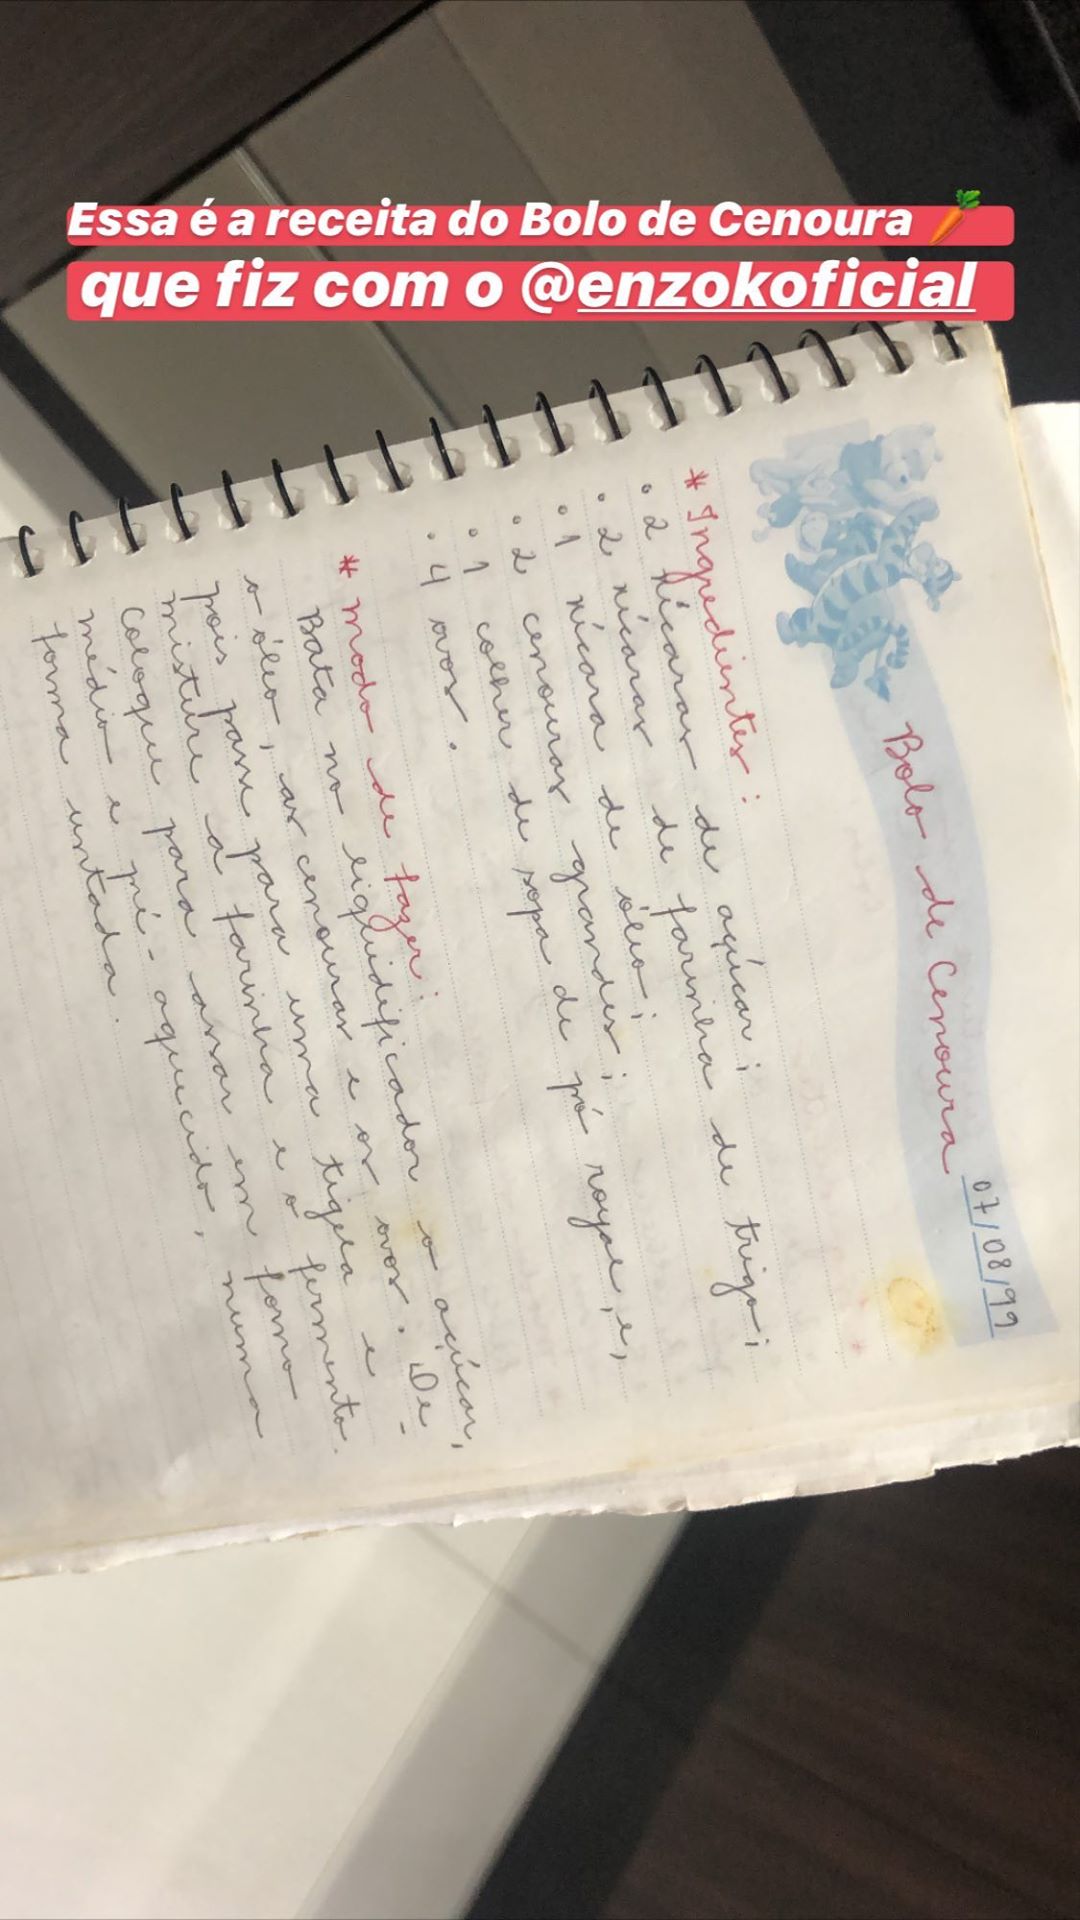 Essa é a receita do Bolo de Cenoura 🥕
que fiz com o @enzokoficial
Bolo de Cenoura 07/08/99
* Ingredientes:
• 2 xícaras de açúcar;
• 2 xícaras de farinha de trigo;
• 1 xícara de óleo;
• 2 cenouras grandes;
• 1 colher de sopa de pó royal, e,
• 4 ovos.
* modo de fazer:
Bata no liquidificador o açúcar,
o óleo, as cenouras e os ovos. De-
pois passe para uma tigela e
misture a farinha e o fermento.
Coloque para assar em forno
médio e pré-aquecido, numa
forma untada.